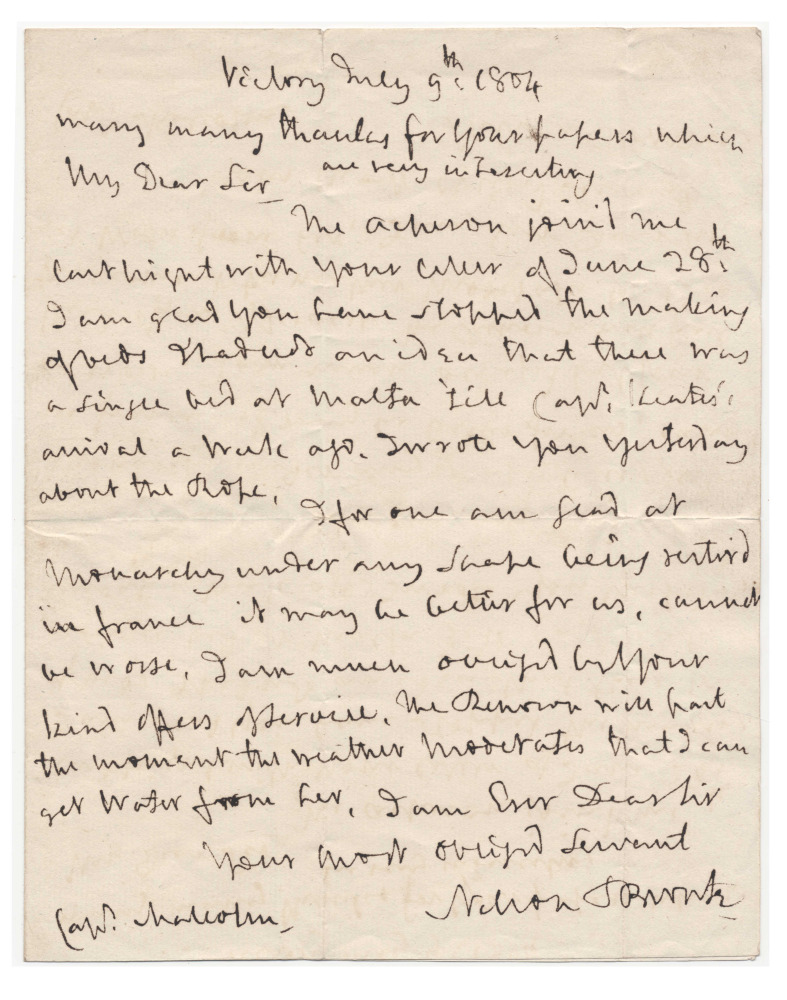 Victory July 9th: 1804
many many thanks for your papers which
are very interesting
My Dear Sir
The Acheron join'd me
last night with your letter of June 28th:
I am glad you have stopped the making
of beds I had not an idea that there was
a single bed at Malta till Capt: Keats's
arrival a Week ago. I wrote you yesterday
about the Rope.
I for one am glad at
Monarchy under any shape being restor'd
in france it may be better for us, cannot
be worse. I am much oblig'd by your
kind offers of service. The Renown will part
the moment the weather Moderates that I can
get Water from her, I am Ever Dear Sir
Your most oblig'd servant
Nelson & Bronte
Capt: Malcolm